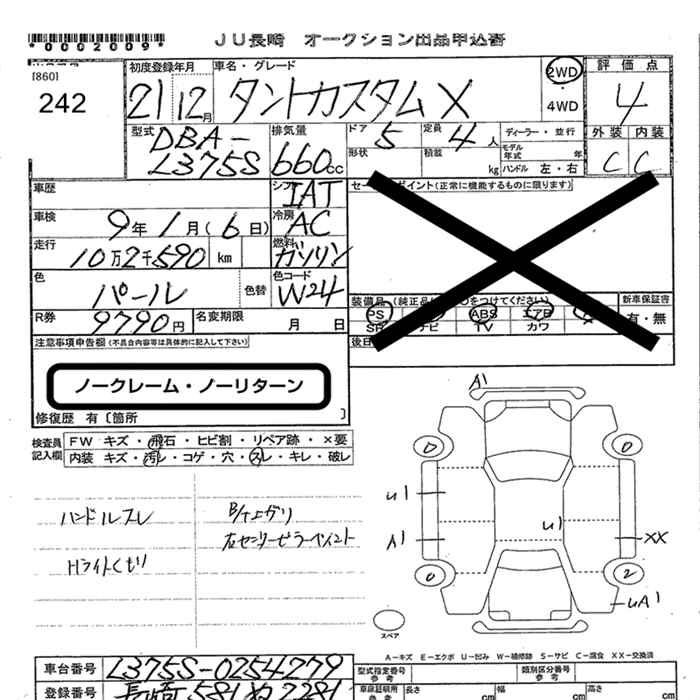 *0002009*
JU長崎 オークション出品申込書
[860]
242
初度登録年月
21 12月
車名・グレード
タントカスタムX
2WD
・
4WD
評価点
4
外装 内装
C C
型式
DBA-
L375S
排気量
660cc
ドア 5
定員 4人
形状
積載 kg
ディーラー・並行
モデル年式 年
ハンドル 左・右
車歴
シフト
IAT
セールスポイント(正常に機能するものに限ります)
車検
9年1月(6日)
冷房
AC
走行
10万2千590 km
燃料
ガソリン
色
パール
色替
色コード
W24
R券
9790円
名変期限 月 日
装備品 (純正品に○をつけてください)
PS ナビ ABS TV エアB カワ
新車保証書
有・無
注意事項申告欄(不具合内容等は具体的に記入して下さい)
ノークレーム・ノーリターン
修復歴 有〔箇所 〕
検査員記入欄
FW キズ・飛石・ヒビ割・リペア跡・×要
内装 キズ・汚レ・コゲ・穴・スレ・キレ・破レ
ハンドルスレ
Hライトくもり
B/下エグリ
左センターピラーペイント
A1
U1
A1
U1
XX
2
UA1
スペア
A-キズ E-エクボ U-凹み W-補修跡 S-サビ C-腐食 XX-交換済
車台番号
L375S-0254779
登録番号
長崎581ぬ2281
型式指定番号
参考
類別区分番号
参考
車庫証明用
参考
長さ cm
幅 cm
高さ cm